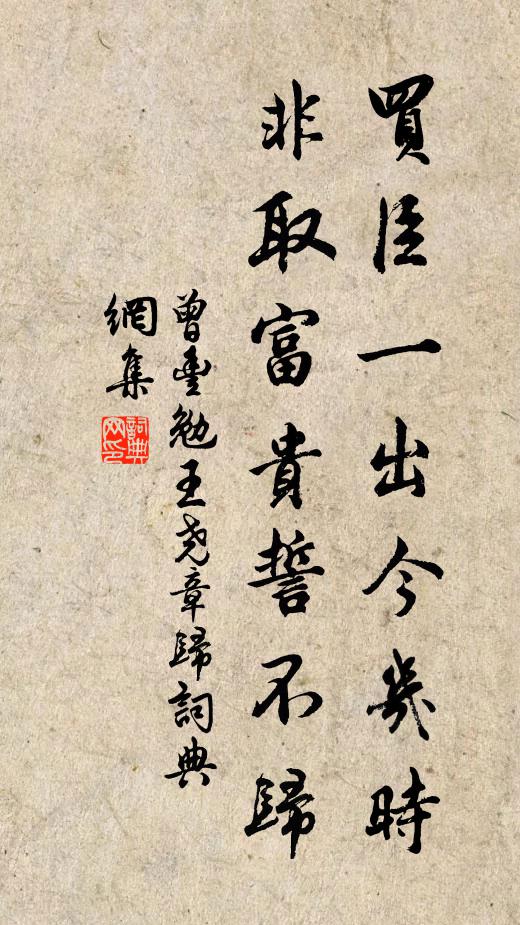 買臣一出今幾時
非取富貴誓不歸
曾豐勉王尧章歸詞典
網集
詞典
网印